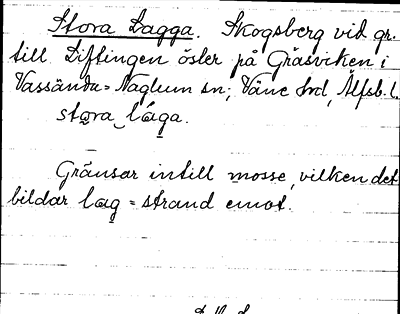 Stora Lagga. Skogsberg vid gr.
till Liftingen öster på Gräsviken i
Vassända=Naglum sn; Väne hrd, Älfsb. l.
stora lága.
Gränsar intill mosse, vilken det
bildar lag = strand emot.